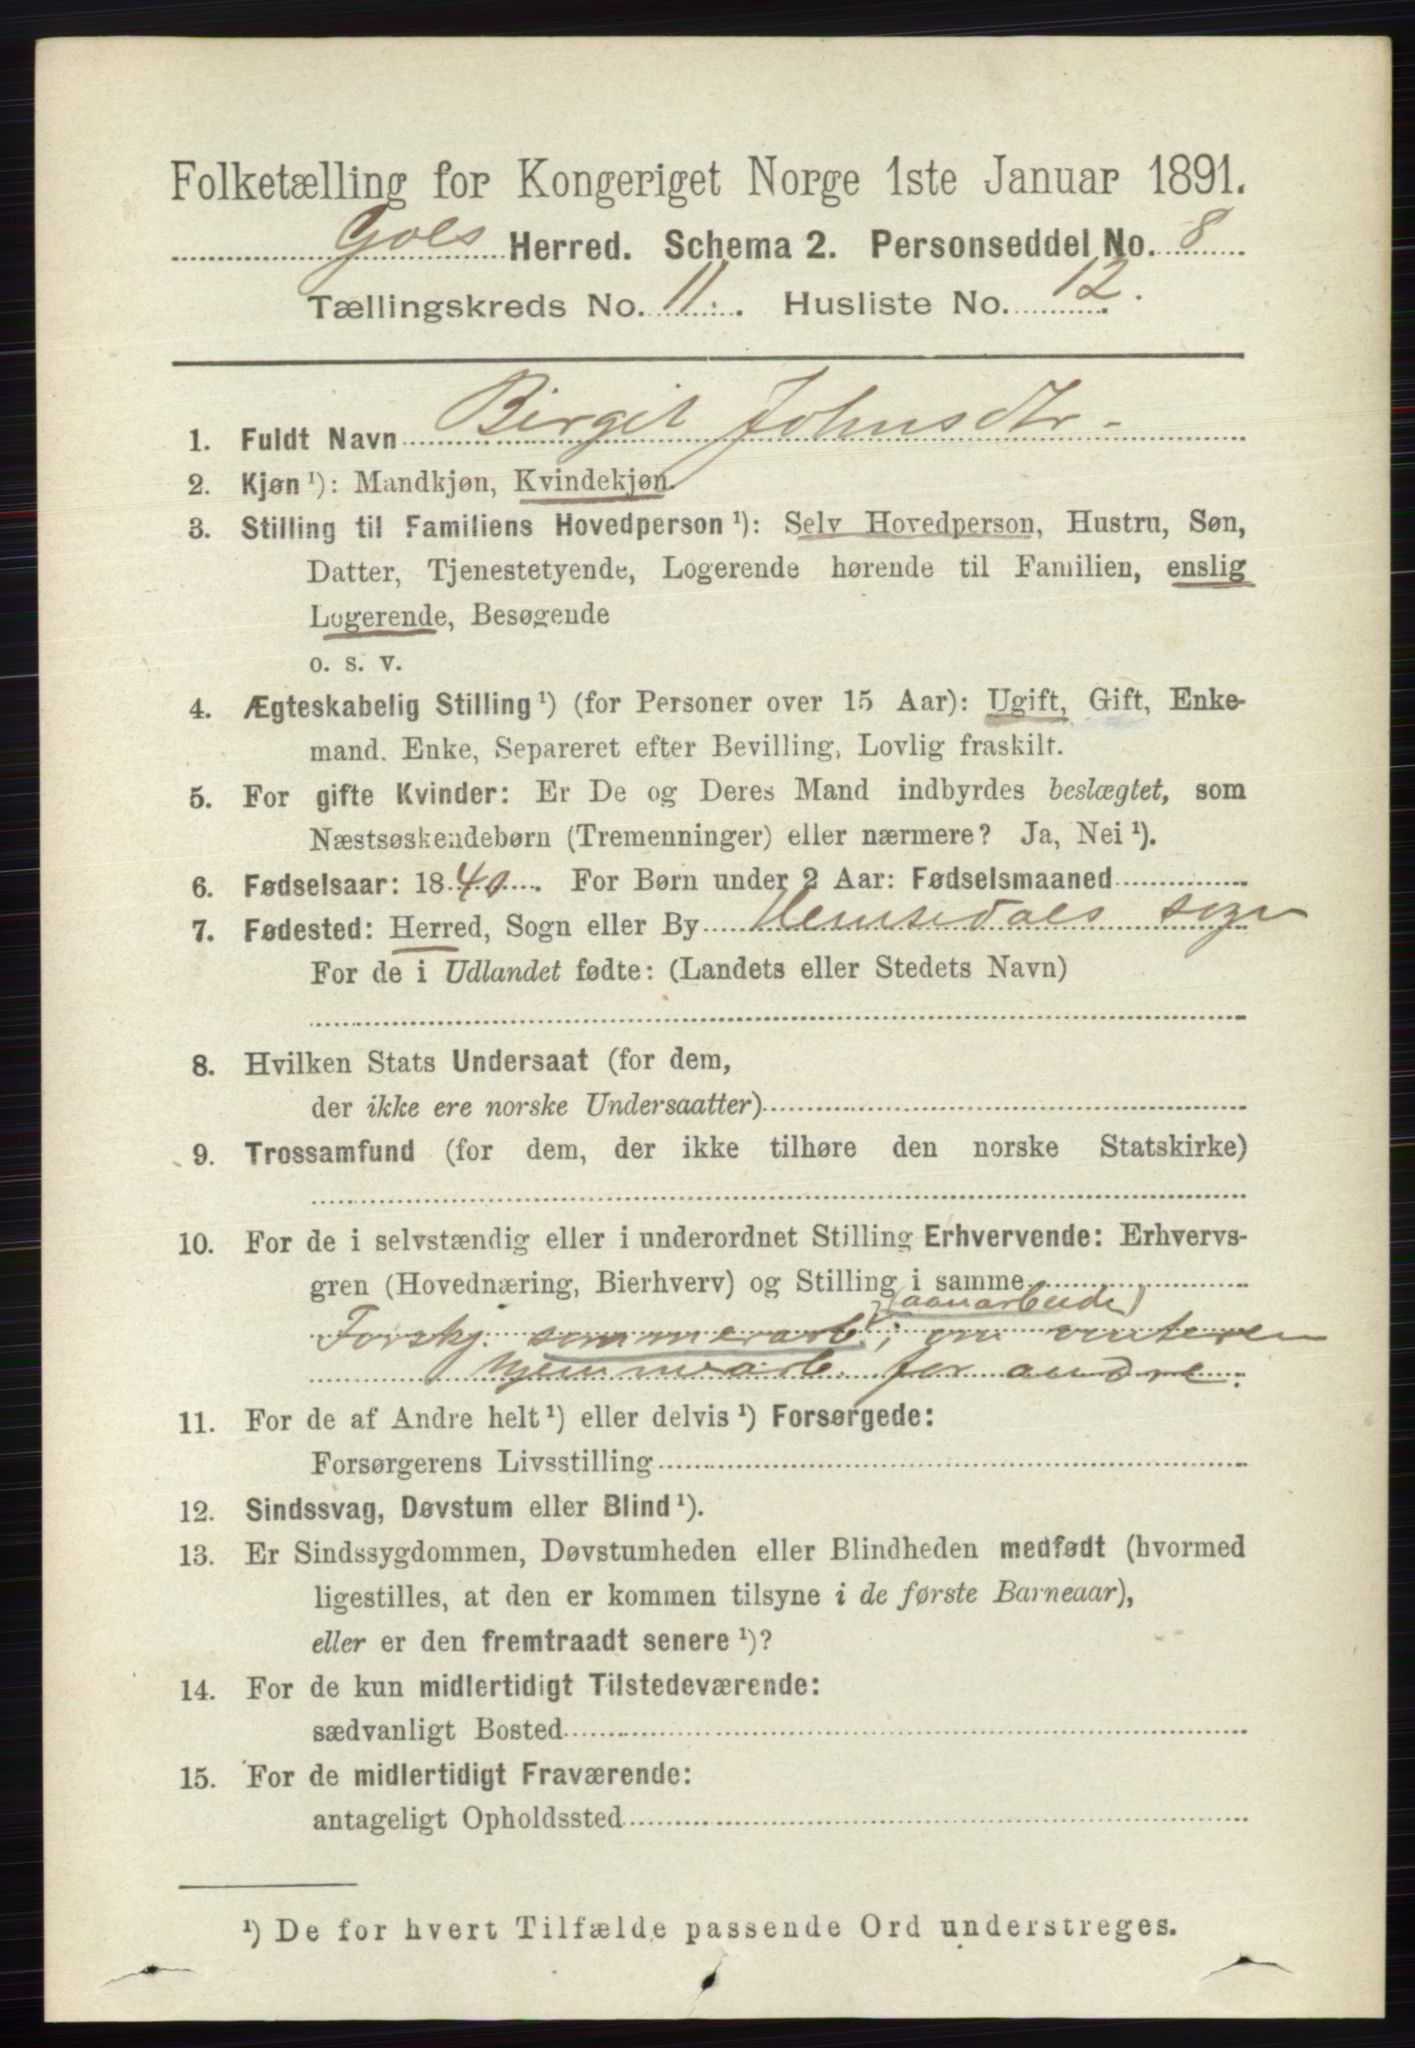 Folketælling for Kongeriget Norge 1ste Januar 1891.
Gols Herred. Schema 2. Personseddel No. 8
Tællingskreds No. 11. Husliste No. 12.
1. Fuldt Navn Birgit Johnsdtr -
2. Kjøn ¹): Mandkjøn, Kvindekjøn.
3. Stilling til Familiens Hovedperson ¹): Selv Hovedperson, Hustru, Søn,
Datter, Tjenestetyende, Logerende hørende til Familien, enslig
Logerende, Besøgende
o. s. v.
4. Ægteskabelig Stilling ¹) (for Personer over 15 Aar): Ugift, Gift, Enke-
mand. Enke, Separeret efter Bevilling, Lovlig fraskilt.
5. For gifte Kvinder: Er De og Deres Mand indbyrdes beslægtet, som
Næstsøskendebørn (Tremenninger) eller nærmere? Ja, Nei ¹).
6. Fødselsaar: 1840. For Børn under 2 Aar: Fødselsmaaned
7. Fødested: Herred, Sogn eller By Hemsedals sogn
For de i Udlandet fødte: (Landets eller Stedets Navn)
8. Hvilken Stats Undersaat (for dem,
der ikke ere norske Undersaatter)
9. Trossamfund (for dem, der ikke tilhøre den norske Statskirke)
10. For de i selvstændig eller i underordnet Stilling Erhvervende: Erhvervs-
gren (Hovednæring, Bierhverv) og Stilling i samme
(aanarbeide)
Forskj. sommerarb.; om vinteren
hjemmearb. for andre.
11. For de af Andre helt ¹) eller delvis ¹) Forsørgede:
Forsørgerens Livsstilling
12. Sindssvag, Døvstum eller Blind ¹).
13. Er Sindssygdommen, Døvstumheden eller Blindheden medfødt (hvormed
ligestilles, at den er kommen tilsyne i de første Barneaar),
eller er den fremtraadt senere ¹)?
14. For de kun midlertidigt Tilstedeværende:
sædvanligt Bosted
15. For de midlertidigt Fraværende:
antageligt Opholdssted
¹) De for hvert Tilfælde passende Ord understreges.